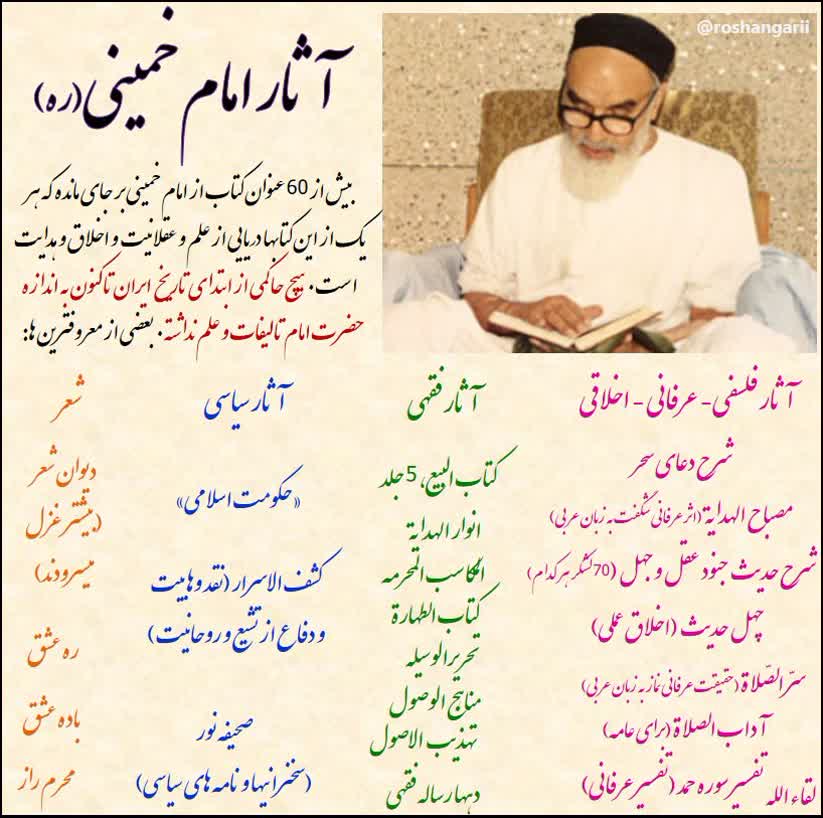 @roshangarii
آثار امام خمینی(ره)
بیش از 60 عنوان کتاب از امام خمینی بر جای مانده که هر
یک از این کتابها دریایی از علم و عقلانیت و اخلاق و هدایت
است. هیچ حاکمی از ابتدای تاریخ ایران تاکنون به اندازه
حضرت امام تالیفات و علم نداشته. بعضی از معروفترین ها:
آثار فلسفی - عرفانی - اخلاقی
شرح دعای سحر
مصباح الهدایة (اثر عرفانی شگفت به زبان عربی)
شرح حدیث جنود عقل و جهل (70 لشکر هرکدام)
چهل حدیث (اخلاق عملی)
سرّ الصّلاة (حقیقت عرفانی نماز به زبان عربی)
آداب الصلاة (برای عامه)
لقاء الله تفسیر سوره حمد (تفسیر عرفانی)
آثار فقهی
کتاب البیع، 5 جلد
انوار الهدایة
المکاسب المحرمه
کتاب الطهارة
تحریر الوسیله
مناهج الوصول
تهذیب الاصول
دهها رساله فقهی
آثار سیاسی
«حکومت اسلامی»
کشف الاسرار (نقد وهابیت
و دفاع از تشیع و روحانیت)
صحیفه نور
(سخنرانیها و نامه های سیاسی)
شعر
دیوان شعر
(بیشتر غزل
میسرودند)
ره عشق
باده عشق
محرم راز